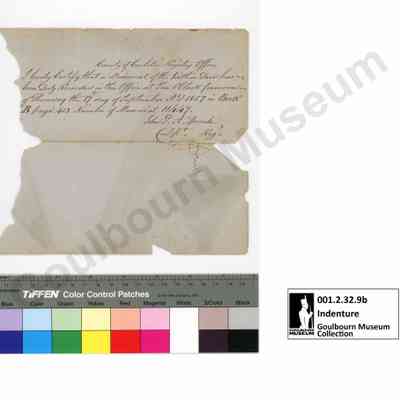 County of Carleton Registry Office
I hereby Certify that a Memorial of the within Deed has
been Duly Recorded in this Office at Ten O'Clock forenoon
of Thursday the 17 day of September AD 1857 in Book
B page 413 Number of Memorial 11447.
Goulbourn Museum
TIFFEN Color Control Patches
Blue Cyan Green Yellow Red Magenta White 3/Color Black
001.2.32.9b
Indenture
Goulbourn Museum
Collection
GOULBOURN
MUSEUM